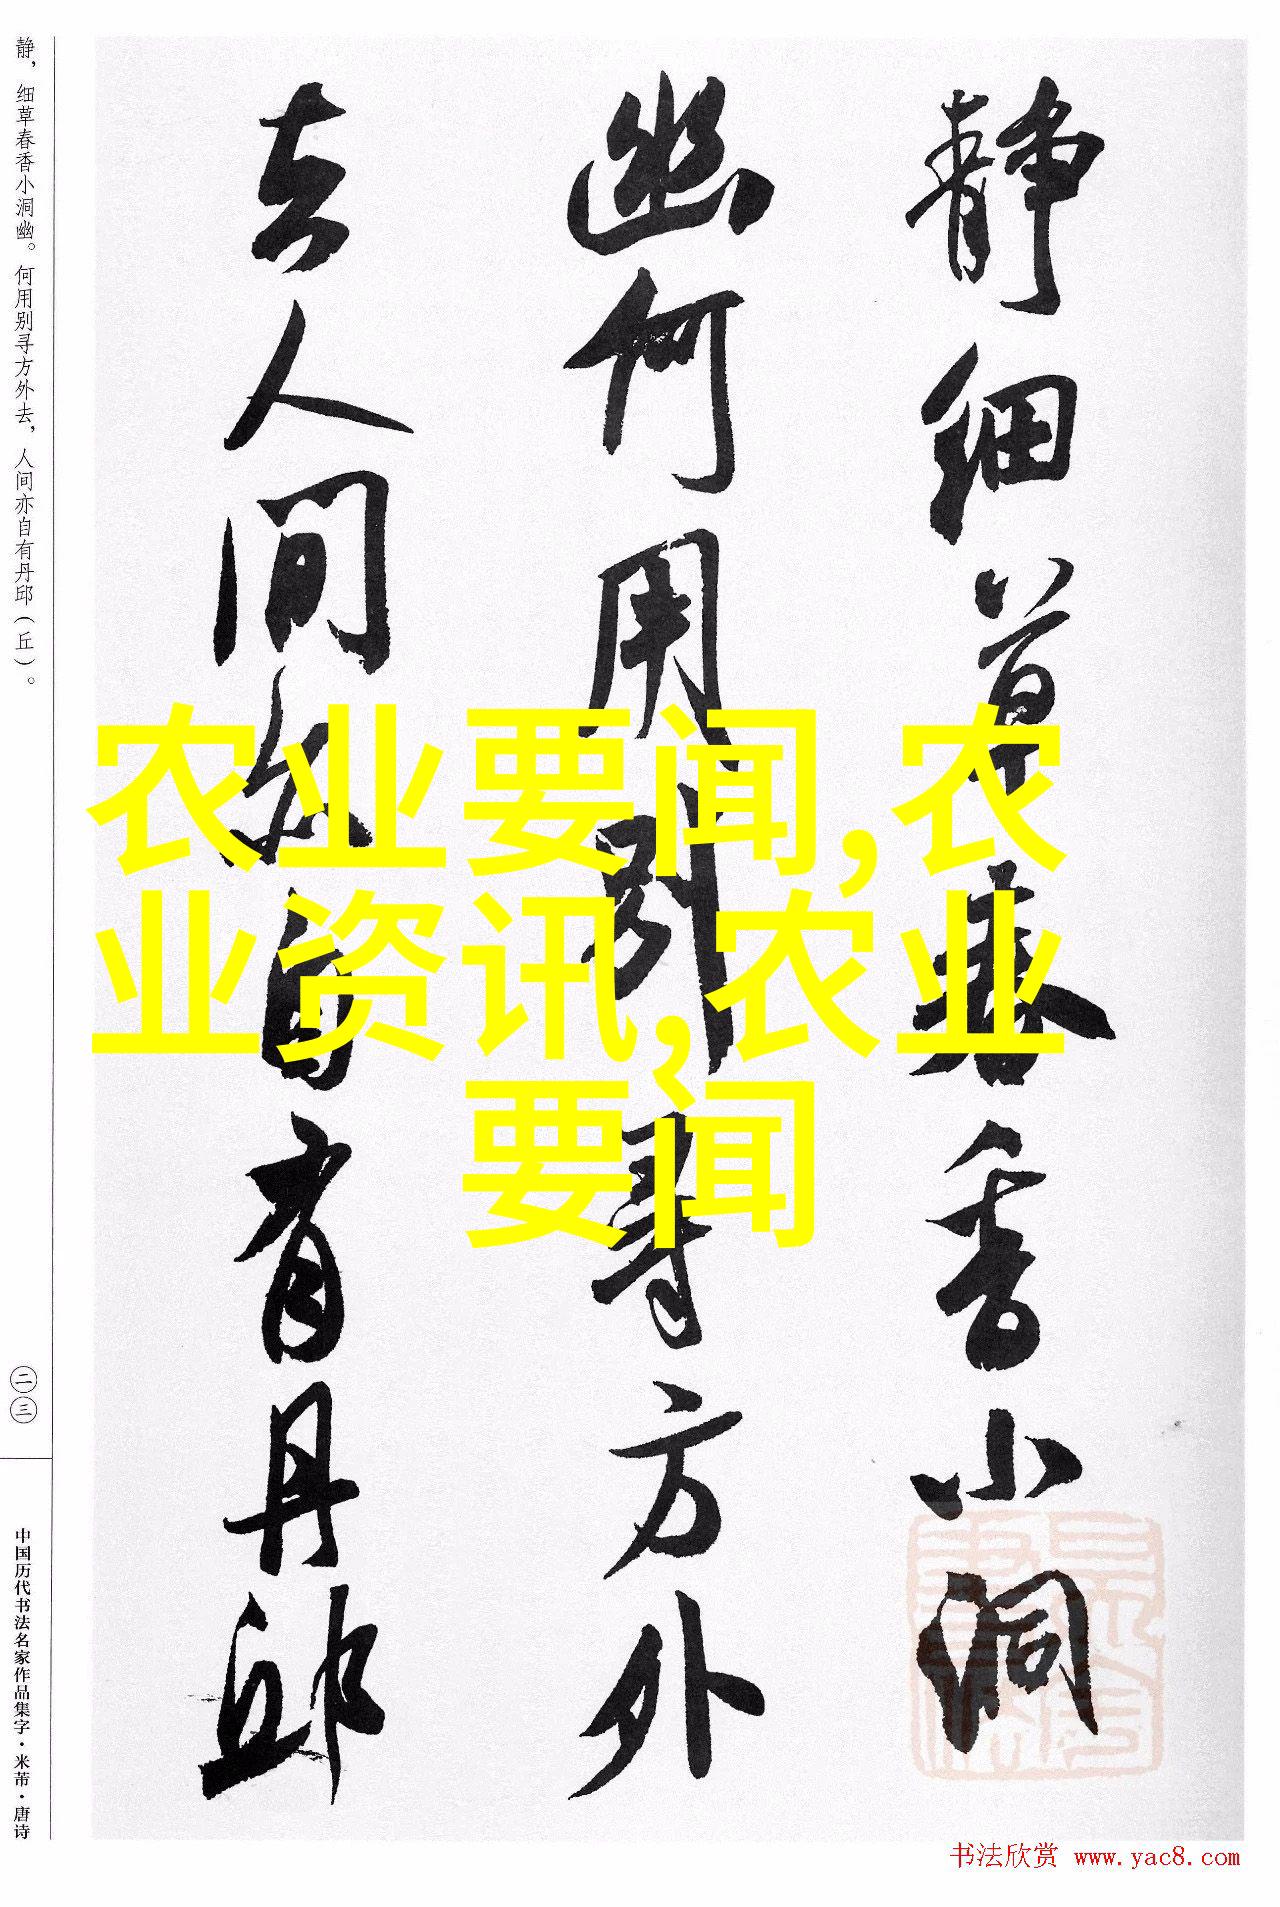 静细草春香小洞
幽何用别寻方外
去人间亦自有丹邱
静，细草春香小洞幽。何用别寻方外去，人间亦自有丹邱（丘）。
二三
中国历代书法名家作品集字·米芾·唐诗
农业要闻,农
业资讯,农业
要闻
书法欣赏 www.yac8.com